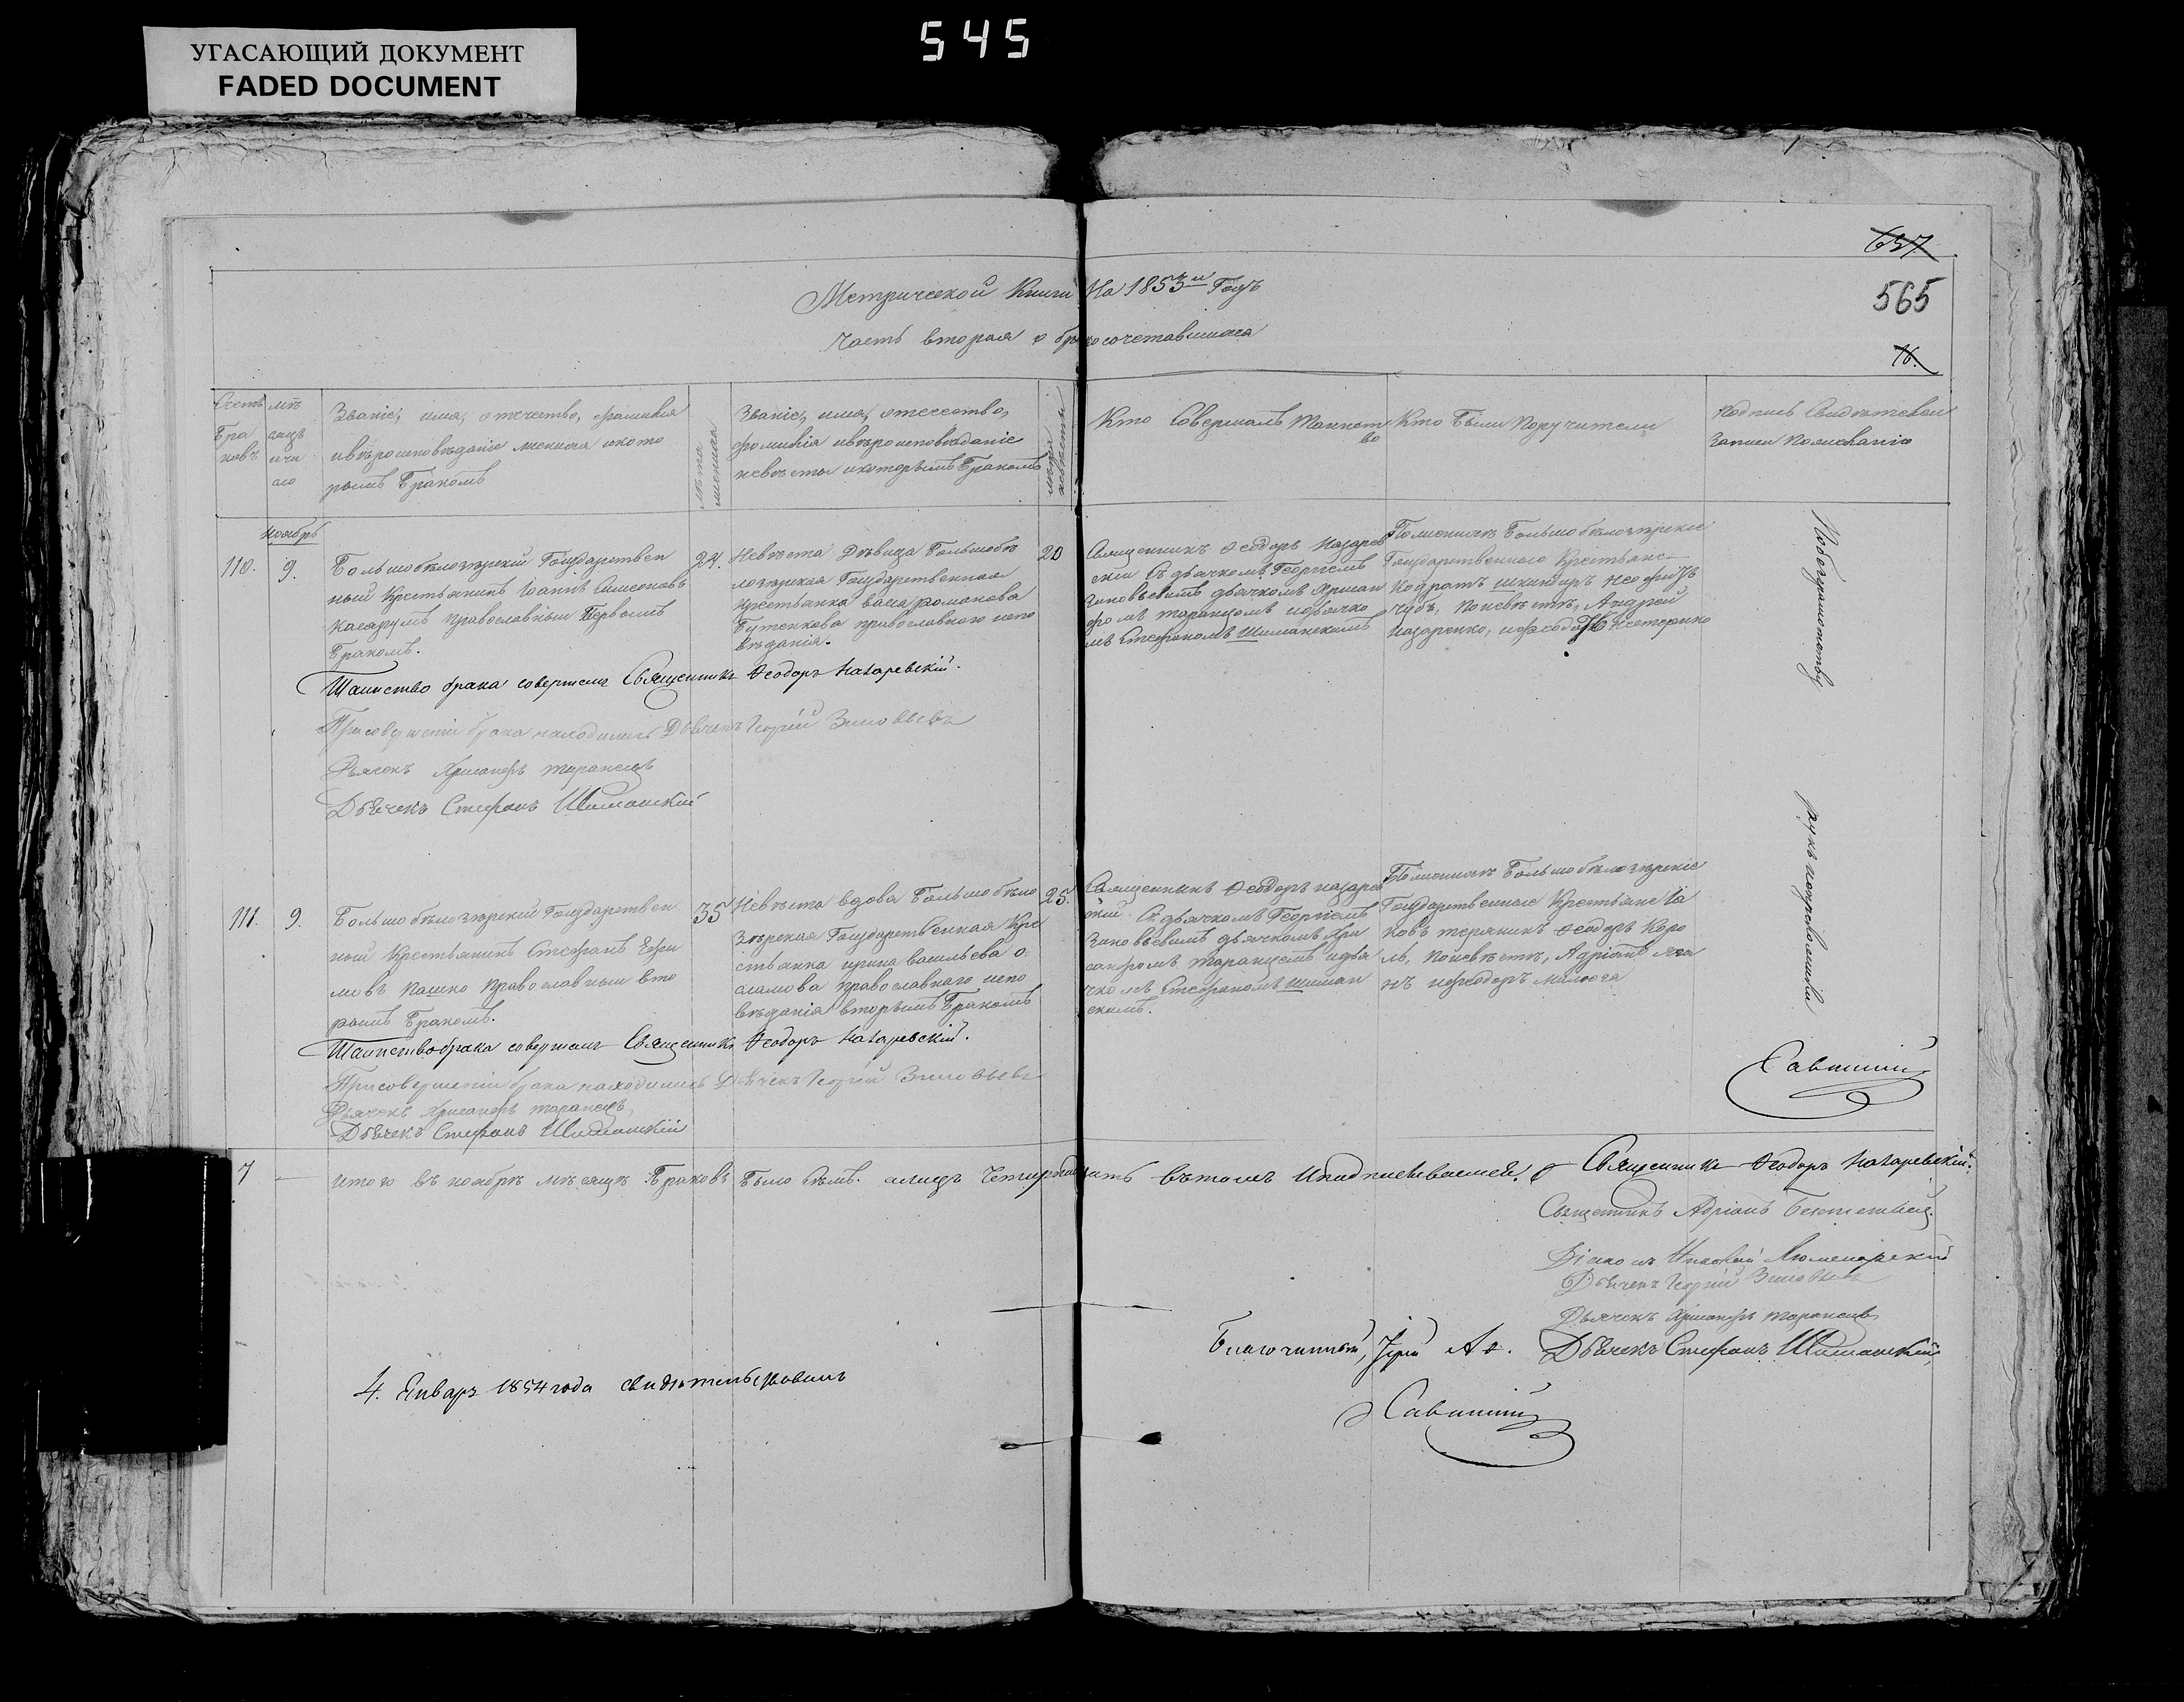 545
УГАСАЮЩИЙ ДОКУМЕНТ
FADED DOCUMENT
657
565
16.
Метрической Книги На 1853й Годъ
часть вторая о бракосочетавшихся
Счетъ Браковъ
мѣсяцъ и число
Званіе, имя, отечество, фамилія
и вѣроисповѣданіе жениха и кото
рымъ Бракомъ
лѣта жениха
Званіе, имя, отечество,
фамилія и вѣроисповѣданіе
невѣсты и которымъ Бракомъ
лѣта невѣсты
Кто Совершалъ Таинст
во
Кто Были Поручители
Подпись Свидѣтелей
Записи По желанію
ноябрь
110. 9.
Большобѣлозерскій Государствен
ный Крестьянинъ Іоаннъ Симеоновъ
православный Первымъ
Бракомъ.
24.
Невѣста Дѣвица Большобѣ
лозерская Государственная
крестьянка васа романова
Бутенкова православнаго испо
вѣданія.
20
Священникъ Ѳеодоръ Назарев
скій Съ дьячкомъ Георгіемъ
Зиновьевымъ дьячкомъ Хрисан
фомъ таранцомъ и дьячко
мъ Стефаномъ Шиманскимъ
По женихѣ Большобѣлозерскіе
Государственные Крестьяне
Кодратъ шкиндиръ
Чубъ, По невѣстѣ, Андрей
назаренко, и нестеренко
По безграмотству
Таинство брака совершилъ Священникъ Ѳеодоръ Назаревскій.
При совершеніи брака находились Дьячекъ Георгій Зиновьевъ
Дьячекъ Хрисанфъ таранецъ
Дьячекъ Стефанъ Шиманскій
111. 9.
Большобѣлозерскій Государствен
ный Крестьянинъ Стефанъ Ефи
мовъ Пашко Православный вто
рымъ Бракомъ.
35
Невѣста вдова Большобѣло
зерская Государственная Кре
стьянка ирина васильева о
сламова православнаго испо
вѣданія вторымъ Бракомъ
25.
Священникъ Ѳеодоръ назарев
скій Съ дьячкомъ Георгіемъ
Зиновьевымъ дьячкомъ Хри
санфомъ таранцемъ и дья
чкомъ Стефаномъ шиман
скимъ.
По женихѣ Большобѣлозерскіе
Государственные Крестьяне Іа
ковъ Ѳеодоръ Коро
ль, По невѣстѣ, Адріанъ
и
рукъ не приложили
Таинство брака совершилъ Священникъ Ѳеодоръ Назаревскій.
При совершеніи брака находились Дьячекъ Георгій Зиновьевъ
Дьячекъ Хрисанфъ таранецъ
Дьячекъ Стефанъ Шиманскій
Савицкій
7 — итого въ ноябрѣ мѣсяцѣ Браковъ Было Семь. а лицъ Четырнадцать въ томъ и подписываемся. Священникъ Ѳеодоръ Назаревскій.
Священникъ Адріанъ
Діаконъ Николай
Дьячекъ Георгій Зиновьевъ
Дьячекъ Хрисанфъ таранецъ
Дьячекъ Стефанъ Шиманскій
4. Январъ 1854 года свидѣтельствовалъ
Благочинный, Іерей
Савицкій